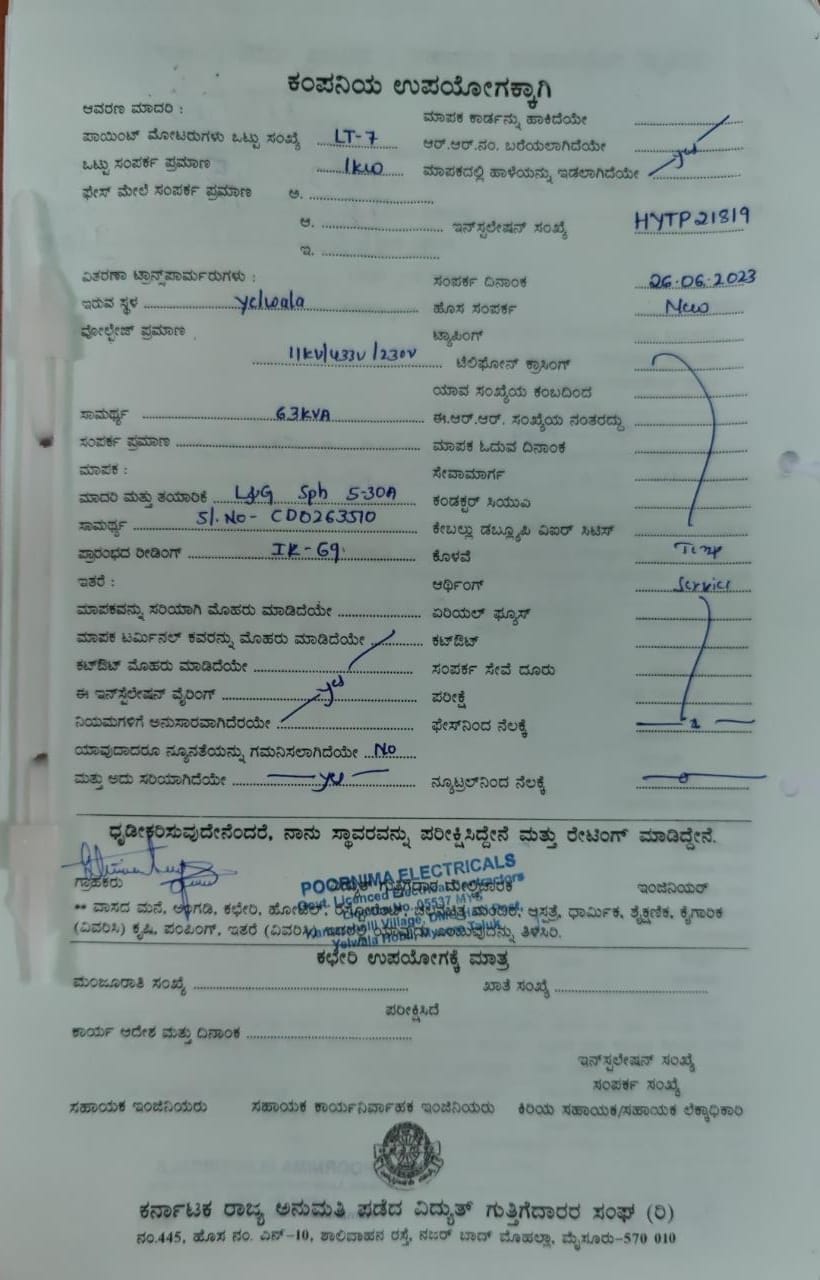 ಕಂಪನಿಯ ಉಪಯೋಗಕ್ಕಾಗಿ
ಆವರಣ ಮಾದರಿ :
ಮಾಪಕ ಕಾರ್ಡನ್ನು ಹಾಕಿದೆಯೇ
ಪಾಯಿಂಟ್ ಮೋಟರುಗಳು ಒಟ್ಟು ಸಂಖ್ಯೆ LT-7
ಆರ್.ಆರ್.ನಂ. ಬರೆಯಲಾಗಿದೆಯೇ
ಒಟ್ಟು ಸಂಪರ್ಕ ಪ್ರಮಾಣ 1kw
ಮಾಪಕದಲ್ಲಿ ಹಾಳೆಯನ್ನು ಇಡಲಾಗಿದೆಯೇ yes
ಫೇಸ್ ಮೇಲೆ ಸಂಪರ್ಕ ಪ್ರಮಾಣ ಅ.
ಆ. ಇನ್‌ಸ್ಟಲೇಷನ್ ಸಂಖ್ಯೆ HYTP21819
ಇ.
ವಿತರಣಾ ಟ್ರಾನ್ಸ್‌ಪಾರ್ಮರುಗಳು :
ಸಂಪರ್ಕ ದಿನಾಂಕ 26.06.2023
ಇರುವ ಸ್ಥಳ Yelwala
ಹೊಸ ಸಂಪರ್ಕ New
ವೋಲ್ಟೇಜ್ ಪ್ರಮಾಣ
ಟ್ಯಾಪಿಂಗ್
11kV/433V/230V
ಟೆಲಿಫೋನ್ ಕ್ರಾಸಿಂಗ್
ಯಾವ ಸಂಖ್ಯೆಯ ಕಂಬದಿಂದ
ಸಾಮರ್ಥ್ಯ 63KVA
ಈ.ಆರ್.ಆರ್. ಸಂಖ್ಯೆಯ ನಂತರದ್ದು
ಸಂಪರ್ಕ ಪ್ರಮಾಣ
ಮಾಪಕ ಓದುವ ದಿನಾಂಕ
ಮಾಪಕ :
ಸೇವಾಮಾರ್ಗ
ಮಾದರಿ ಮತ್ತು ತಯಾರಿಕೆ L&G Sph 5-30A
ಕಂಡಕ್ಟರ್ ಸಿಯುಎ
ಸಾಮರ್ಥ್ಯ Sl.No- CD0263510
ಕೇಬಲ್ಲು ಡಬ್ಲ್ಯೂಪಿ ವಿಐರ್ ಸಿಟಿಸ್
ಪ್ರಾರಂಭದ ರೀಡಿಂಗ್ IR-69.
ಕೊಳವೆ Temp
ಇತರೆ :
ಆರ್ಥಿಂಗ್ Service
ಮಾಪಕವನ್ನು ಸರಿಯಾಗಿ ಮೊಹರು ಮಾಡಿದೆಯೇ
ಏರಿಯಲ್ ಫ್ಯೂಸ್
ಮಾಪಕ ಟರ್ಮಿನಲ್ ಕವರನ್ನು ಮೊಹರು ಮಾಡಿದೆಯೇ
ಕಟ್‌ಔಟ್
ಕಟ್‌ಔಟ್ ಮೊಹರು ಮಾಡಿದೆಯೇ
ಸಂಪರ್ಕ ಸೇವೆ ದೂರು
ಈ ಇನ್‌ಸ್ಟಲೇಷನ್ ವೈರಿಂಗ್ yes
ಪರೀಕ್ಷೆ
ನಿಯಮಗಳಿಗೆ ಅನುಸಾರವಾಗಿದೆರಯೇ
ಫೇಸ್‌ನಿಂದ ನೆಲಕ್ಕೆ
ಯಾವುದಾದರೂ ನ್ಯೂನತೆಯನ್ನು ಗಮನಿಸಲಾಗಿದೆಯೇ No
ಮತ್ತು ಅದು ಸರಿಯಾಗಿದೆಯೇ yes
ನ್ಯೂಟ್ರಲ್‌ನಿಂದ ನೆಲಕ್ಕೆ 0
ಧೃಡೀಕರಿಸುವುದೇನೆಂದರೆ, ನಾನು ಸ್ಥಾವರವನ್ನು ಪರೀಕ್ಷಿಸಿದ್ದೇನೆ ಮತ್ತು ರೇಟಿಂಗ್ ಮಾಡಿದ್ದೇನೆ.
POORNIMA ELECTRICALS
Govt. Licenced Electrical Contractors
ಗ್ರಾಹಕರು ವಿದ್ಯುತ್ ಗುತ್ತಿಗೆದಾರ ಮೇಲ್ವಿಚಾರಕ ಇಂಜಿನಿಯರ್
** ವಾಸದ ಮನೆ, ಅಂಗಡಿ, ಕಛೇರಿ, ಹೋಟೆಲ್, ರೆಸ್ಟೋರೆಂಟ್, ಚಲನಚಿತ್ರ ಮಂದಿರ, ಆಸ್ಪತ್ರೆ, ಧಾರ್ಮಿಕ, ಶೈಕ್ಷಣಿಕ, ಕೈಗಾರಿಕ
(ವಿವರಿಸಿ) ಕೃಷಿ, ಪಂಪಿಂಗ್, ಇತರೆ (ವಿವರಿಸಿ) ಇದರಲ್ಲಿ ಯಾವುದು ಎಂಬುವುದನ್ನು ತಿಳಿಸಿರಿ.
Yelwala Hobli, Mysore Taluk
ಕಛೇರಿ ಉಪಯೋಗಕ್ಕೆ ಮಾತ್ರ
ಮಂಜೂರಾತಿ ಸಂಖ್ಯೆ ಖಾತೆ ಸಂಖ್ಯೆ
ಪರೀಕ್ಷಿಸಿದೆ
ಕಾರ್ಯ ಆದೇಶ ಮತ್ತು ದಿನಾಂಕ
ಇನ್‌ಸ್ಟಲೇಷನ್ ಸಂಖ್ಯೆ
ಸಂಪರ್ಕ ಸಂಖ್ಯೆ
ಸಹಾಯಕ ಇಂಜಿನಿಯರು ಸಹಾಯಕ ಕಾರ್ಯನಿರ್ವಾಹಕ ಇಂಜಿನಿಯರು ಕಿರಿಯ ಸಹಾಯಕ/ಸಹಾಯಕ ಲೆಕ್ಕಾಧಿಕಾರಿ
ಕರ್ನಾಟಕ ರಾಜ್ಯ ಅನುಮತಿ ಪಡೆದ ವಿದ್ಯುತ್ ಗುತ್ತಿಗೆದಾರರ ಸಂಘ (ರಿ)
ನಂ.445, ಹೊಸ ನಂ. ಎನ್-10, ಶಾಲಿವಾಹನ ರಸ್ತೆ, ನಜರ್ ಬಾದ್ ಮೊಹಲ್ಲಾ, ಮೈಸೂರು-570 010